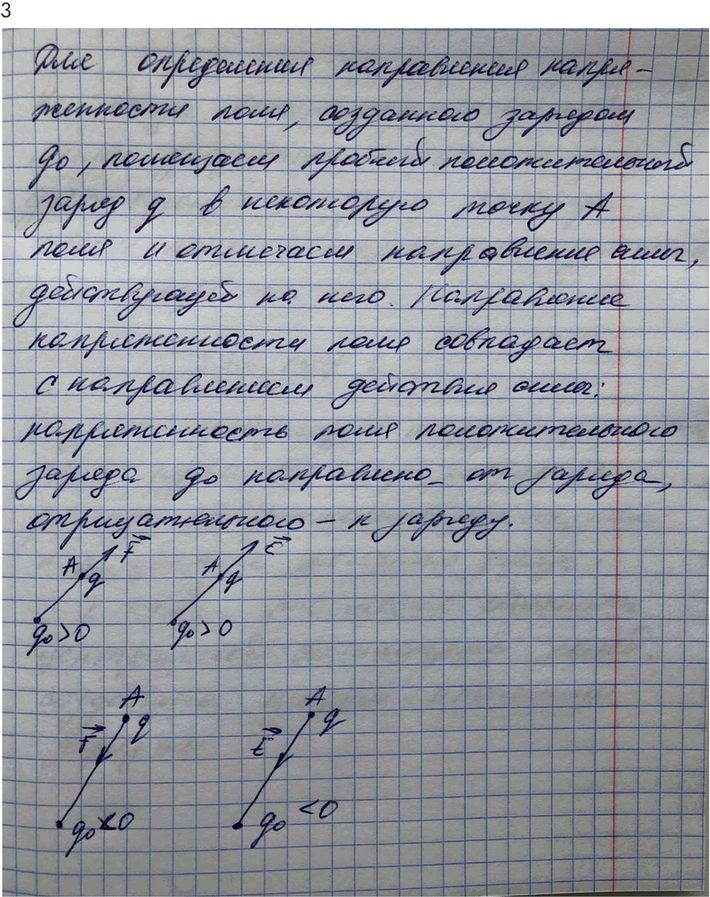 3
Для определения направления напря-
женности поля, созданного зарядом
q₀, помещаем пробный положительный
заряд q в некоторую точку А
поля и отмечаем направление силы,
действующей на него. Направление
напряженности поля совпадает
с направлением действия силы:
напряженность поля положительного
заряда q₀ направлено от заряда,
отрицательного – к заряду.
A q F⃗ q₀>0 A q E⃗ q₀>0
A q F⃗ q₀<0 A q E⃗ q₀<0